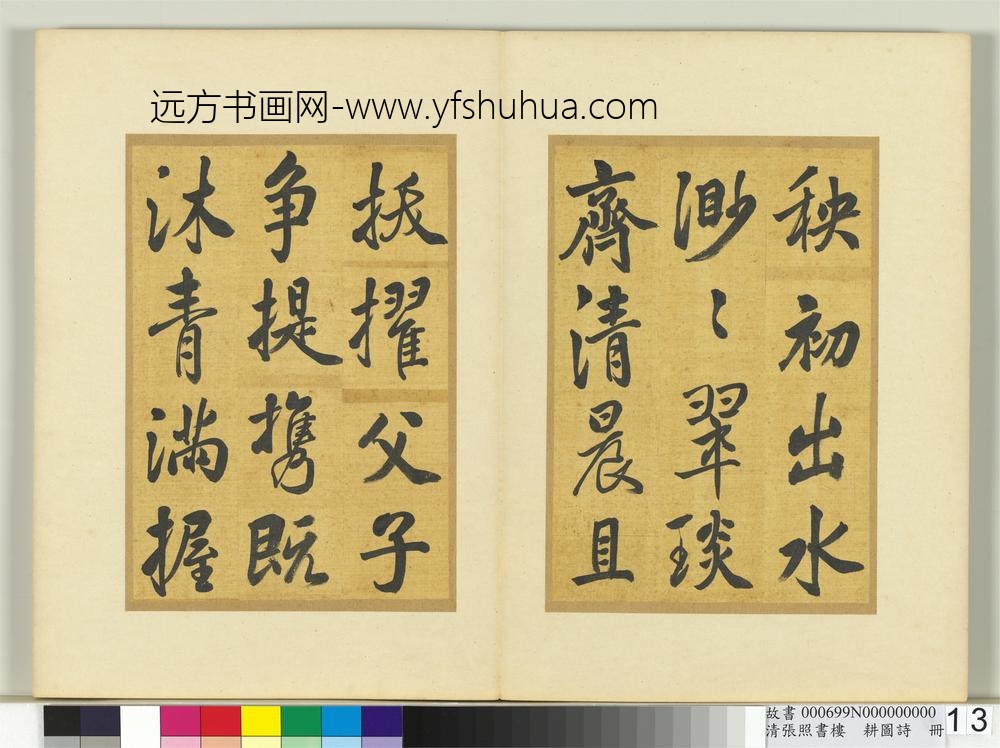 远方书画网-www.yfshuhua.com
秧初出水
渺〻翠琰
齊清晨且
拔擢父子
争提携既
沐青滿握
故書 000699N000000000
清張照書樓 耕圖詩 冊
13